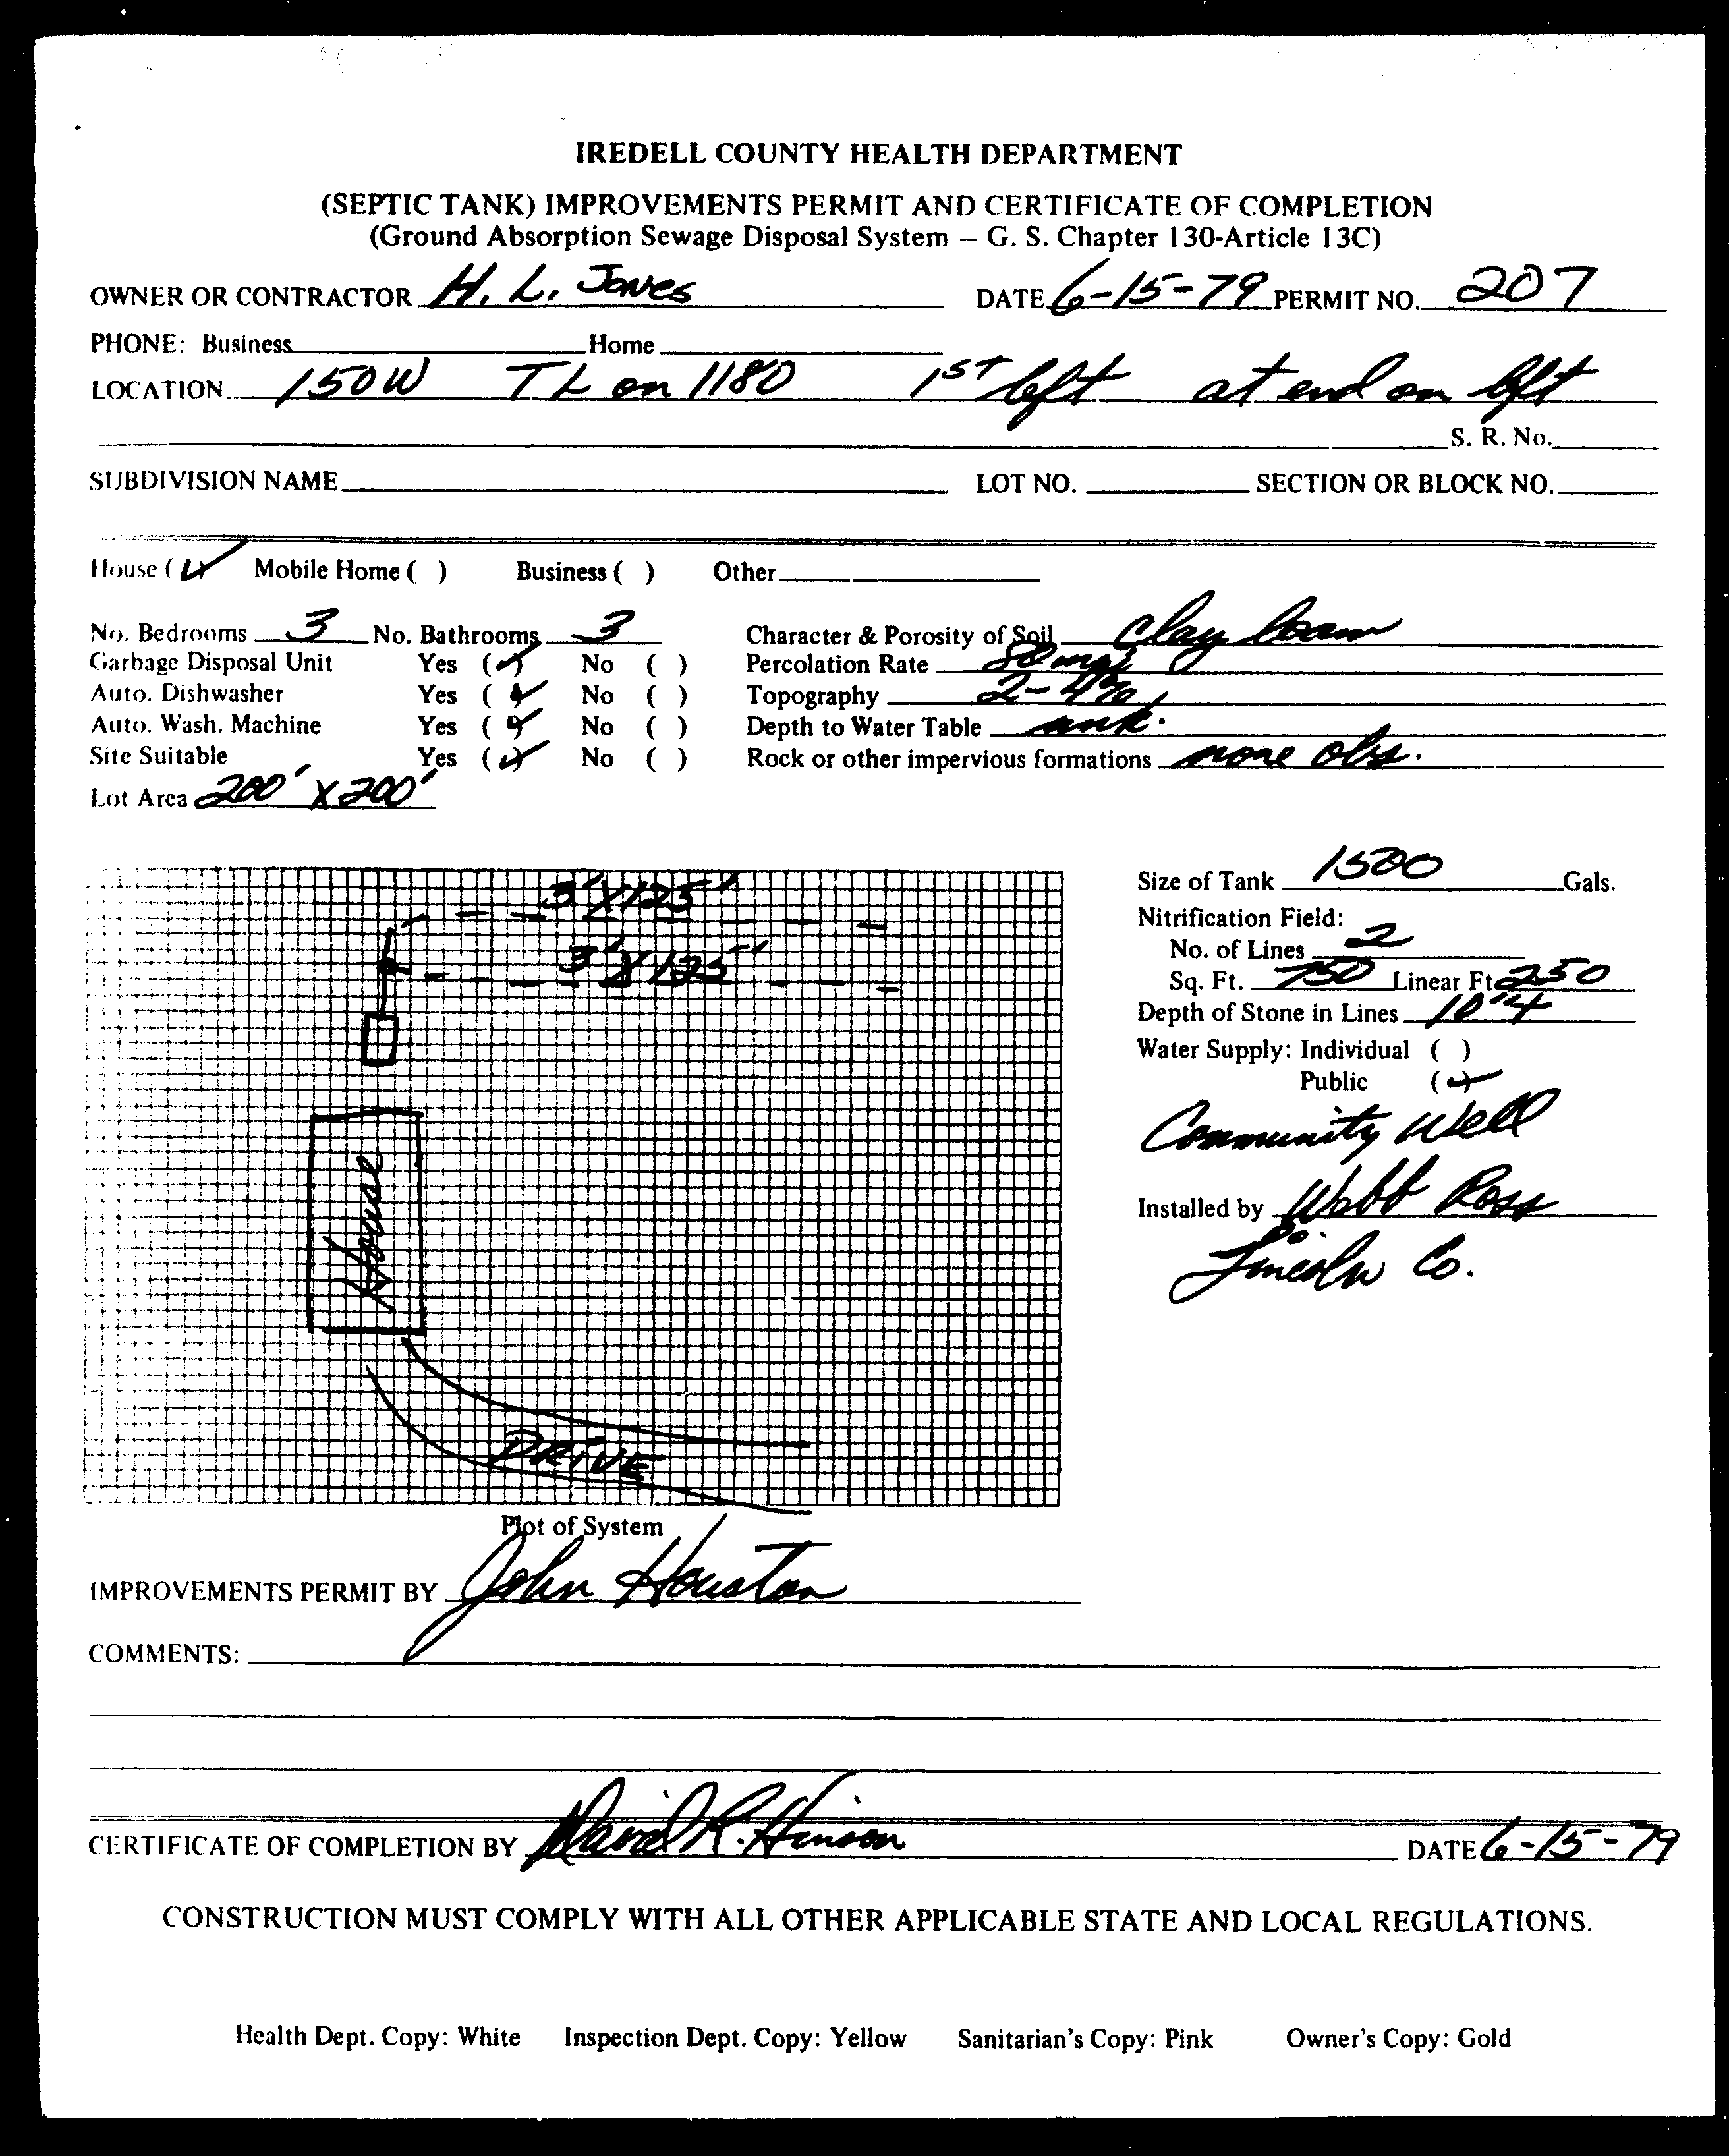 IREDELL COUNTY HEALTH DEPARTMENT
(SEPTIC TANK) IMPROVEMENTS PERMIT AND CERTIFICATE OF COMPLETION
(Ground Absorption Sewage Disposal System – G. S. Chapter 130-Article 13C)
OWNER OR CONTRACTOR H. L. Jones DATE 6-15-79 PERMIT NO. 207
PHONE: Business Home
LOCATION 150W TL on 1180 1ST left at end on left
S. R. No.
SUBDIVISION NAME LOT NO. SECTION OR BLOCK NO.
House (✓) Mobile Home ( ) Business ( ) Other
No. Bedrooms 3 No. Bathrooms 3 Character & Porosity of Soil Clay loam
Garbage Disposal Unit Yes (✓) No ( ) Percolation Rate 80
Auto. Dishwasher Yes (✓) No ( ) Topography 2-4%
Auto. Wash. Machine Yes (✓) No ( ) Depth to Water Table unk.
Site Suitable Yes (✓) No ( ) Rock or other impervious formations none obs.
Lot Area 200' X 200'
3'X125'
3'X125'
House
DRIVE
Plot of System
Size of Tank 1500 Gals.
Nitrification Field:
No. of Lines 2
Sq. Ft. 750 Linear Ft 250
Depth of Stone in Lines 10"
Water Supply: Individual ( )
Public (✓)
Community Well
Installed by Webb Ross
Lincoln Co.
IMPROVEMENTS PERMIT BY John Houston
COMMENTS:
CERTIFICATE OF COMPLETION BY David R. Hinson DATE 6-15-79
CONSTRUCTION MUST COMPLY WITH ALL OTHER APPLICABLE STATE AND LOCAL REGULATIONS.
Health Dept. Copy: White Inspection Dept. Copy: Yellow Sanitarian's Copy: Pink Owner's Copy: Gold